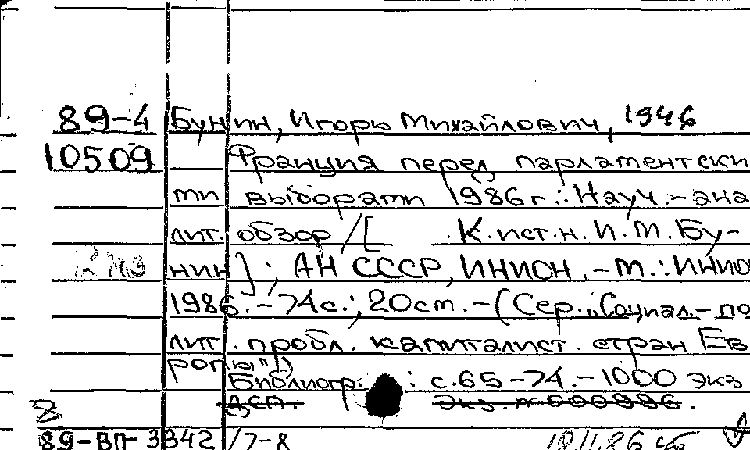 89-4 Бунин, Игорь Михайлович, 1946
10509 Франция перед парламентски
ми выборами 1986г.: Науч.-ана
лит. обзор / [ К.ист.н. И.М. Бу-
нин]; АН СССР, ИНИОН. - М.: ИНИО
1986. - 74с.; 20см. - (Сер. "Социал.-по
лит. пробл. капиталист. стран Ев
ропы")
Библиогр.: с.65-74. - 1000 экз
ДСП. Экз. N 000986.
2
89-ВП-3342 /7-8